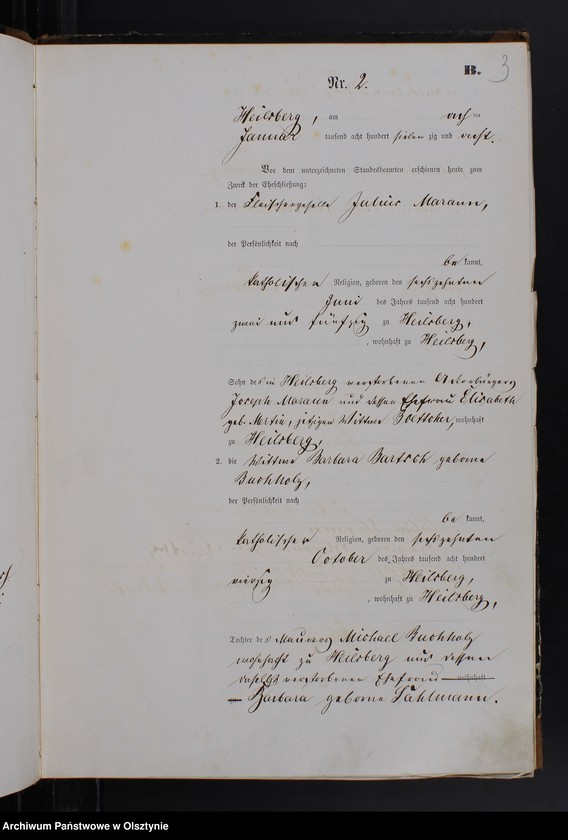 B. 3
Nr. 2.
Heilsberg, am acht ten
Januar tausend acht hundert sieben zig und acht.
Vor dem unterzeichneten Standesbeamten erschienen heute zum
Zweck der Eheschließung:
1. der Fleischergeselle Julius Marann,
der Persönlichkeit nach
be kannt,
katholischen Religion, geboren den sechszehnten
Juni des Jahres tausend acht hundert
zwei und fünfzig zu Heilsberg,
, wohnhaft zu Heilsberg,
Sohn des in Heilsberg verstorbenen Ackerbürgers
Joseph Marann und dessen Ehefrau Elisabeth
geb. Mertin, jetzigen Wittwe Boettcher, wohnhaft
zu Heilsberg,
2. die Wittwe Barbara Bartsch geborne
Buchholz,
der Persönlichkeit nach
be kannt,
katholischer Religion, geboren den sechszehnten
October des Jahres tausend acht hundert
vierzig zu Heilsberg,
, wohnhaft zu Heilsberg,
Tochter des Maurers Michael Buchholz
wohnhaft zu Heilsberg und dessen
daselbst verstorbenen Ehefrau wohnhaft
zu Barbara geborne Sahlmann.
Archiwum Państwowe w Olsztynie